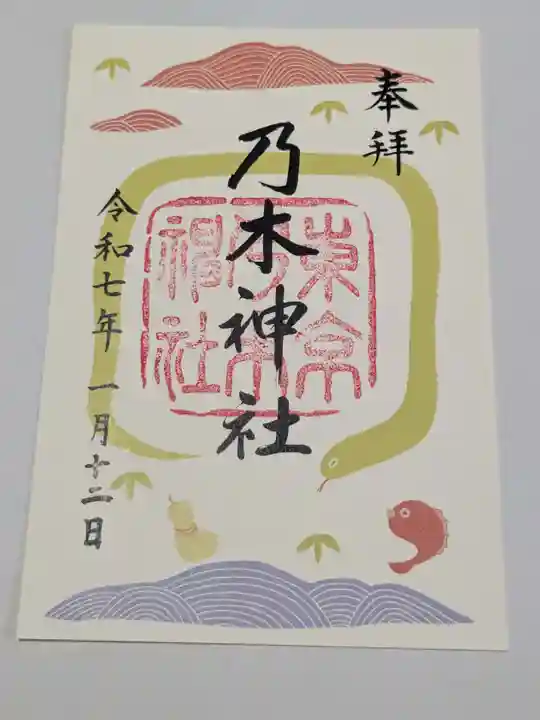 奉拝
乃木神社
東京
乃木
神社
令和七年一月十二日